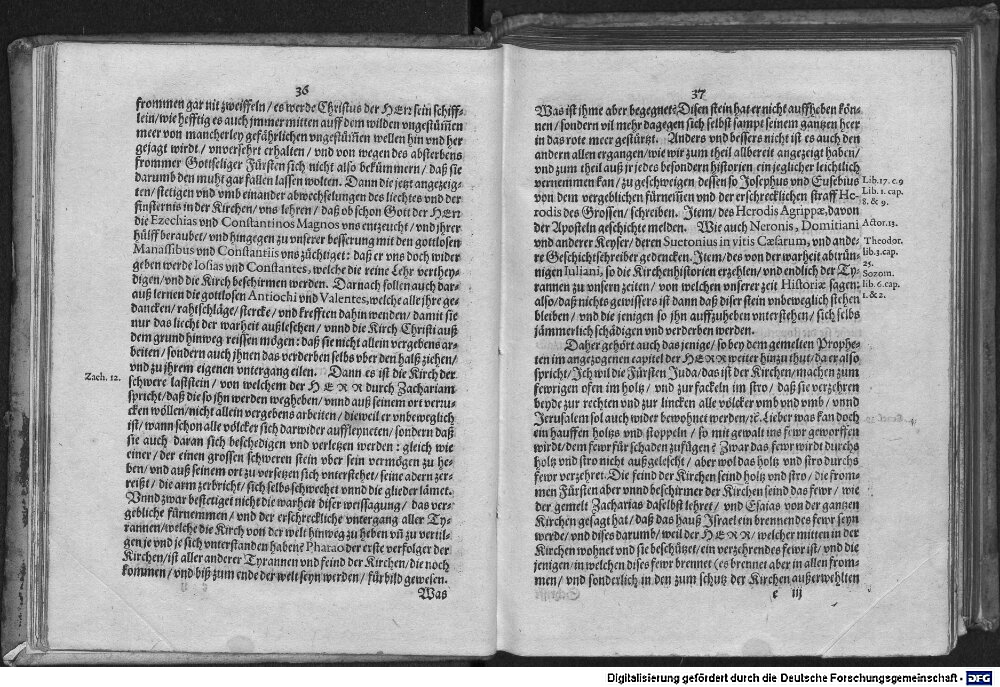 36
frommen gar nit zweiffeln / es werde Christus der HErr sein schiff-
lein / wie hefftig es auch jmmer mitten auff dem wilden vngestümen
meer von mancherley gefährlichen vngestümen wellen hin vnd her
gejagt wirdt / vnversehrt erhalten / vnd von wegen des absterbens
frommer Gottseliger Fürsten sich nicht also bekümmern / daß sie
darumb den muht gar fallen lassen wolten. Dann die jetzt angezeig-
ten / stetigen vnd vmb einander abwechselungen des liechtes vnd der
finsternis in der Kirchen / vns lehren / daß ob schon Gott der HErr
die Ezechias vnd Constantinos Magnos vns entzeucht / vnd jhrer
hülff beraubet / vnd hingegen zu vnserer besserung mit den gottlosen
Manassibus vnd Constantiis vns züchtiget: daß er vns doch wider
geben werde Iosias vnd Constantes, welche die reine Lehr verthey-
digen / vnd die Kirch beschirmen werden. Darnach sollen auch dar-
auß lernen die gottlosen Antiochi vnd Valentes, welche alle jhre ge-
dancken / rahtschläge / stercke / vnd krefften dahin wenden / damit sie
nur das liecht der warheit außleschen / vnnd die Kirch Christi auß
dem grund hinweg reissen mögen: daß sie nicht allein vergebens ar-
beiten / sondern auch jhnen das verderben selbs vber den halß ziehen /
vnd zu jhrem eigenen vntergang eilen. Dann es ist die Kirch der
Zach. 12.
schwere laststein / von welchem der HERR durch Zachariam
spricht / daß die so jhn werden wegheben / vnnd auß seinem ort verru-
cken wöllen / nicht allein vergebens arbeiten / dieweil er vnbeweglich
ist / wann schon alle völcker sich darwider auffleyneten / sondern daß
sie auch daran sich beschedigen vnd verletzen werden: gleich wie
einer / der einen grossen schweren stein vber sein vermögen zu he-
ben / vnd auß seinem ort zu versetzen sich vnterstehet / seine adern zer-
reißt / die arm zerbricht / sich selbs schwechet vnnd die glieder lämet.
Vnnd zwar bestetiget nicht die warheit diser weissagung / das ver-
gebliche fürnemmen / vnd der erschreckliche vntergang aller Ty-
rannen / welche die Kirch von der welt hinweg zu heben vñ zu vertil-
gen je vnd je sich vnterstanden haben? Pharao der erste verfolger der
Kirchen / ist aller anderer Tyrannen vnd feind der Kirchen / die noch
kommen / vnd biß zum ende der welt seyn werden / fürbild gewesen.
Was
37
Was ist ihme aber begegnet? Disen stein hat er nicht auffheben kön-
nen / sondern vil mehr dagegen sich selbst sampt seinem gantzen heer
in das rote meer gestürtzt. Anders vnd bessers nicht ist es auch den
andern allen ergangen / wie wir zum theil allbereit angezeigt haben /
vnd zum theil auß jr jedes besondern historien ein jeglicher leichtlich
vernemmen kan / zu geschweigen dessen so Josephus vnd Eusebius
Lib. 17. c. 9
Lib. 1. cap.
8. & 9.
von dem vergeblichen fürnemmen vnd der erschrecklichen straff He-
rodis des Grossen / schreiben. Item / des Herodis Agrippæ, davon
der Aposteln geschichte melden. Wie auch Neronis, Domitiani
Actor. 13.
vnd anderer Keyser / deren Suetonius in vitis Cæsarum, vnd ande-
re Geschichtschreiber gedencken. Item / des von der warheit abtrün-
Theodor.
lib. 3. cap.
25.
nigen Iuliani, so die Kirchenhistorien erzehlen / vnd endlich der Ty-
rannen zu vnsern zeiten / von welchen vnserer zeit Historiæ sagen:
Sozom.
lib. 6. cap.
1. & 2.
also / daß nichts gewissers ist dann daß diser stein vnbeweglich stehen
bleiben / vnd die jenigen so jhn auffzuheben vnterstehen / sich selbs
jämmerlich schädigen vnd verderben werden.
Daher gehört auch das jenige / so bey dem gemelten Prophe-
ten im angezogenen capitel der HERR weiter hinzu thut / da er also
spricht / Ich wil die Fürsten Juda / das ist der Kirchen / machen zum
fewrigen ofen im holtz / vnd zur fackeln im stro / daß sie verzehren
beyde zur rechten vnd zur lincken alle völcker vmb vnd vmb / vnnd
Jerusalem sol auch wider bewohnet werden / ꝛc. Lieber was kan doch
ein hauffen holtzs vnd stoppeln / so mit gewalt ins fewr geworffen
wirdt / dem fewr für schaden zufügen? Zwar das fewr wirdt durchs
holtz vnd stro nicht außgelescht / aber wol das holtz vnd stro durchs
fewr verzehret. Die feind der Kirchen seind holtz vnd stro / die from-
men Fürsten aber vnnd beschirmer der Kirchen seind das fewr / wie
der gemelt Zacharias daselbst lehret / vnd Esaias von der gantzen
Kirchen gesagt hat / daß das hauß Israel ein brennendes fewr seyn
werde / vnd dises darumb / weil der HERR / welcher mitten in der
Kirchen wohnet vnd sie beschützet / ein verzehrendes fewr ist / vnd die
jenigen / in welchen dises fewr brennet (es brennet aber in allen from-
men / vnd sonderlich in den zum schutz der Kirchen außerwehlten
e iij
Digitalisierung gefördert durch die Deutsche Forschungsgemeinschaft - DFG